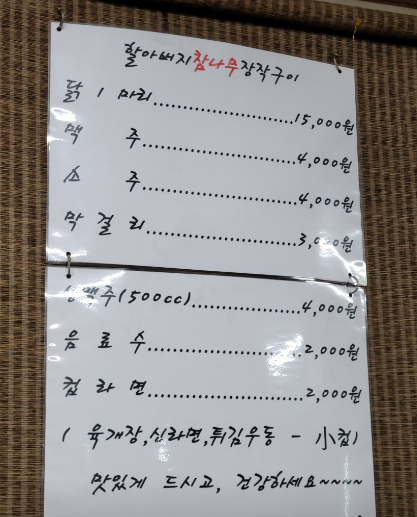 할아버지참나무장작구이
닭 1 마리..................15,000원
맥 주..................4,000원
소 주..................4,000원
막 걸 리..................3,000원
생맥주(500cc)..................4,000원
음 료 수..................2,000원
컵 라 면..................2,000원
( 육개장,신라면,튀김우동 - 小컵)
맛있게 드시고, 건강하세요~~~~